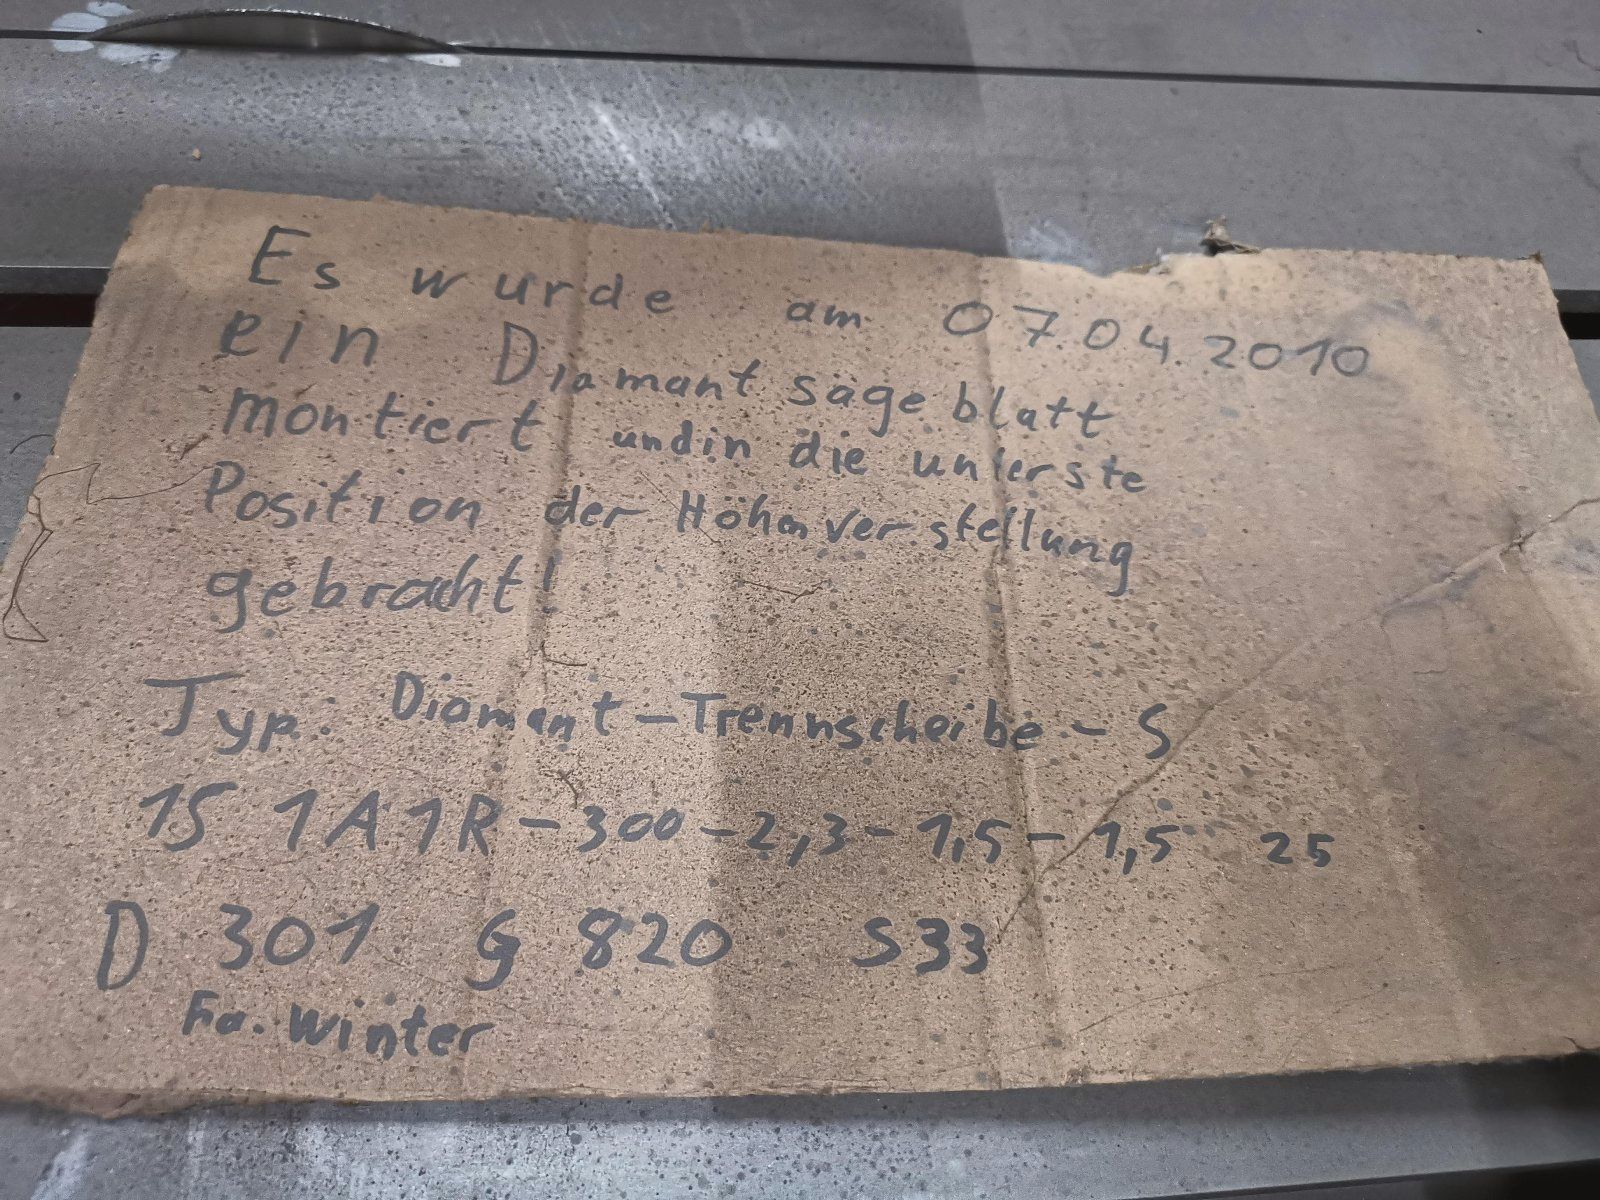 Es wurde am 07.04.2010
ein Diamantsägeblatt
montiert und in die unterste
Position der Höhenverstellung
gebracht!
Typ: Diamant-Trennscheibe-S
1S 1A1R-300-2,3-1,5-1,5 25
D 301 G 820 S33
Fa. Winter